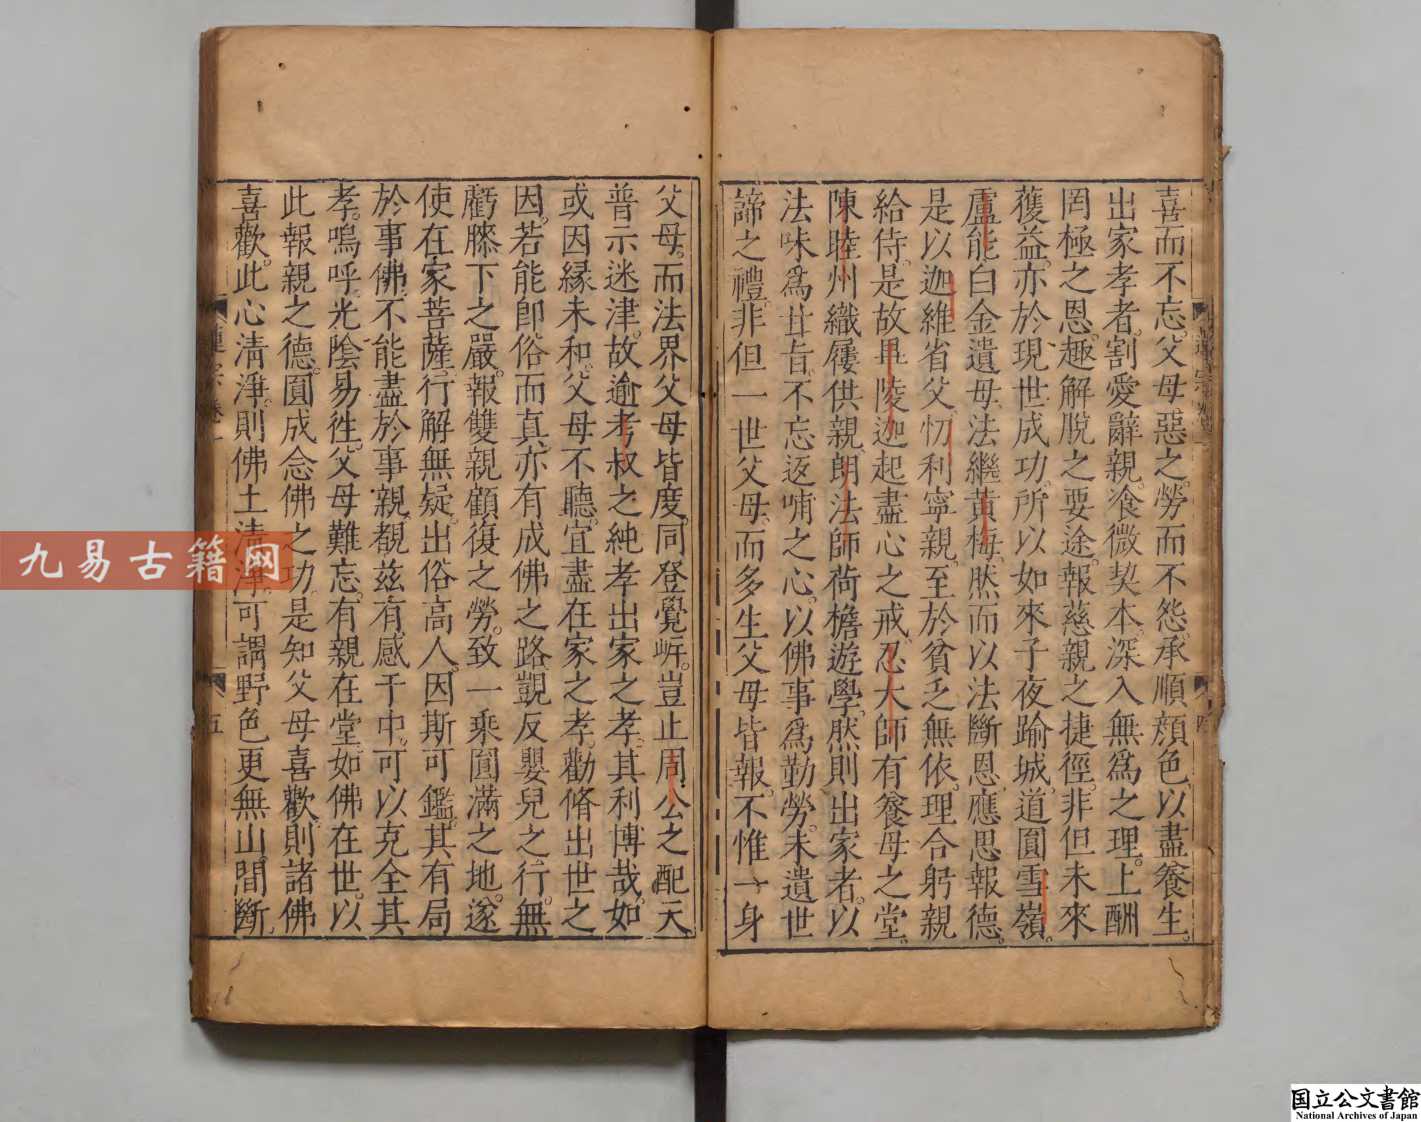 喜而不忘。父母惡之。勞而不怨。承順顏色。以盡養生。
出家孝者。割愛辭親。飡微契本。深入無爲之理。上酬
罔極之恩。趣解脫之要途。報慈親之捷徑。非但未來
獲益。亦於現世成功。所以如來子夜踰城。道圓雪嶺。
盧能白金遺母。法繼黃梅。然而以法斷恩。應思報德。
是以迦維省父。忉利寧親。至於貧乏無依。理合躬親
給侍。是故畢陵迦起盡心之戒。忍大師有養母之堂。
陳睦州織屨供親。朗法師荷擔遊學。然則出家者。以
法味爲甘旨。不忘返哺之心。以佛事爲勤勞。未遺世
諦之禮。非但一世父母。而多生父母皆報。不惟一身
父母。而法界父母皆度。同登覺岸。豈止周公之配天
普示迷津。故逾考叔之純孝。出家之孝。其利博哉。如
或因緣未和。父母不聽。宜盡在家之孝。勸脩出世之
因。若能卽俗而真。亦有成佛之路。覬反嬰兒之行。無
虧膝下之嚴。報雙親顧復之勞。致一乘圓滿之地。遂
使在家菩薩。行解無疑。出俗高人。因斯可鑑。其有局
於事佛。不能盡於事親。覩兹有感于中。可以克全其
孝。嗚呼。光陰易徃。父母難忘。有親在堂。如佛在世。以
此報親之德。圓成念佛之功。是知父母喜歡。則諸佛
喜歡。此心淸淨。則佛土淸淨。可謂野色更無山間斷。
五
九易古籍网
国立公文書館
National Archives of Japan